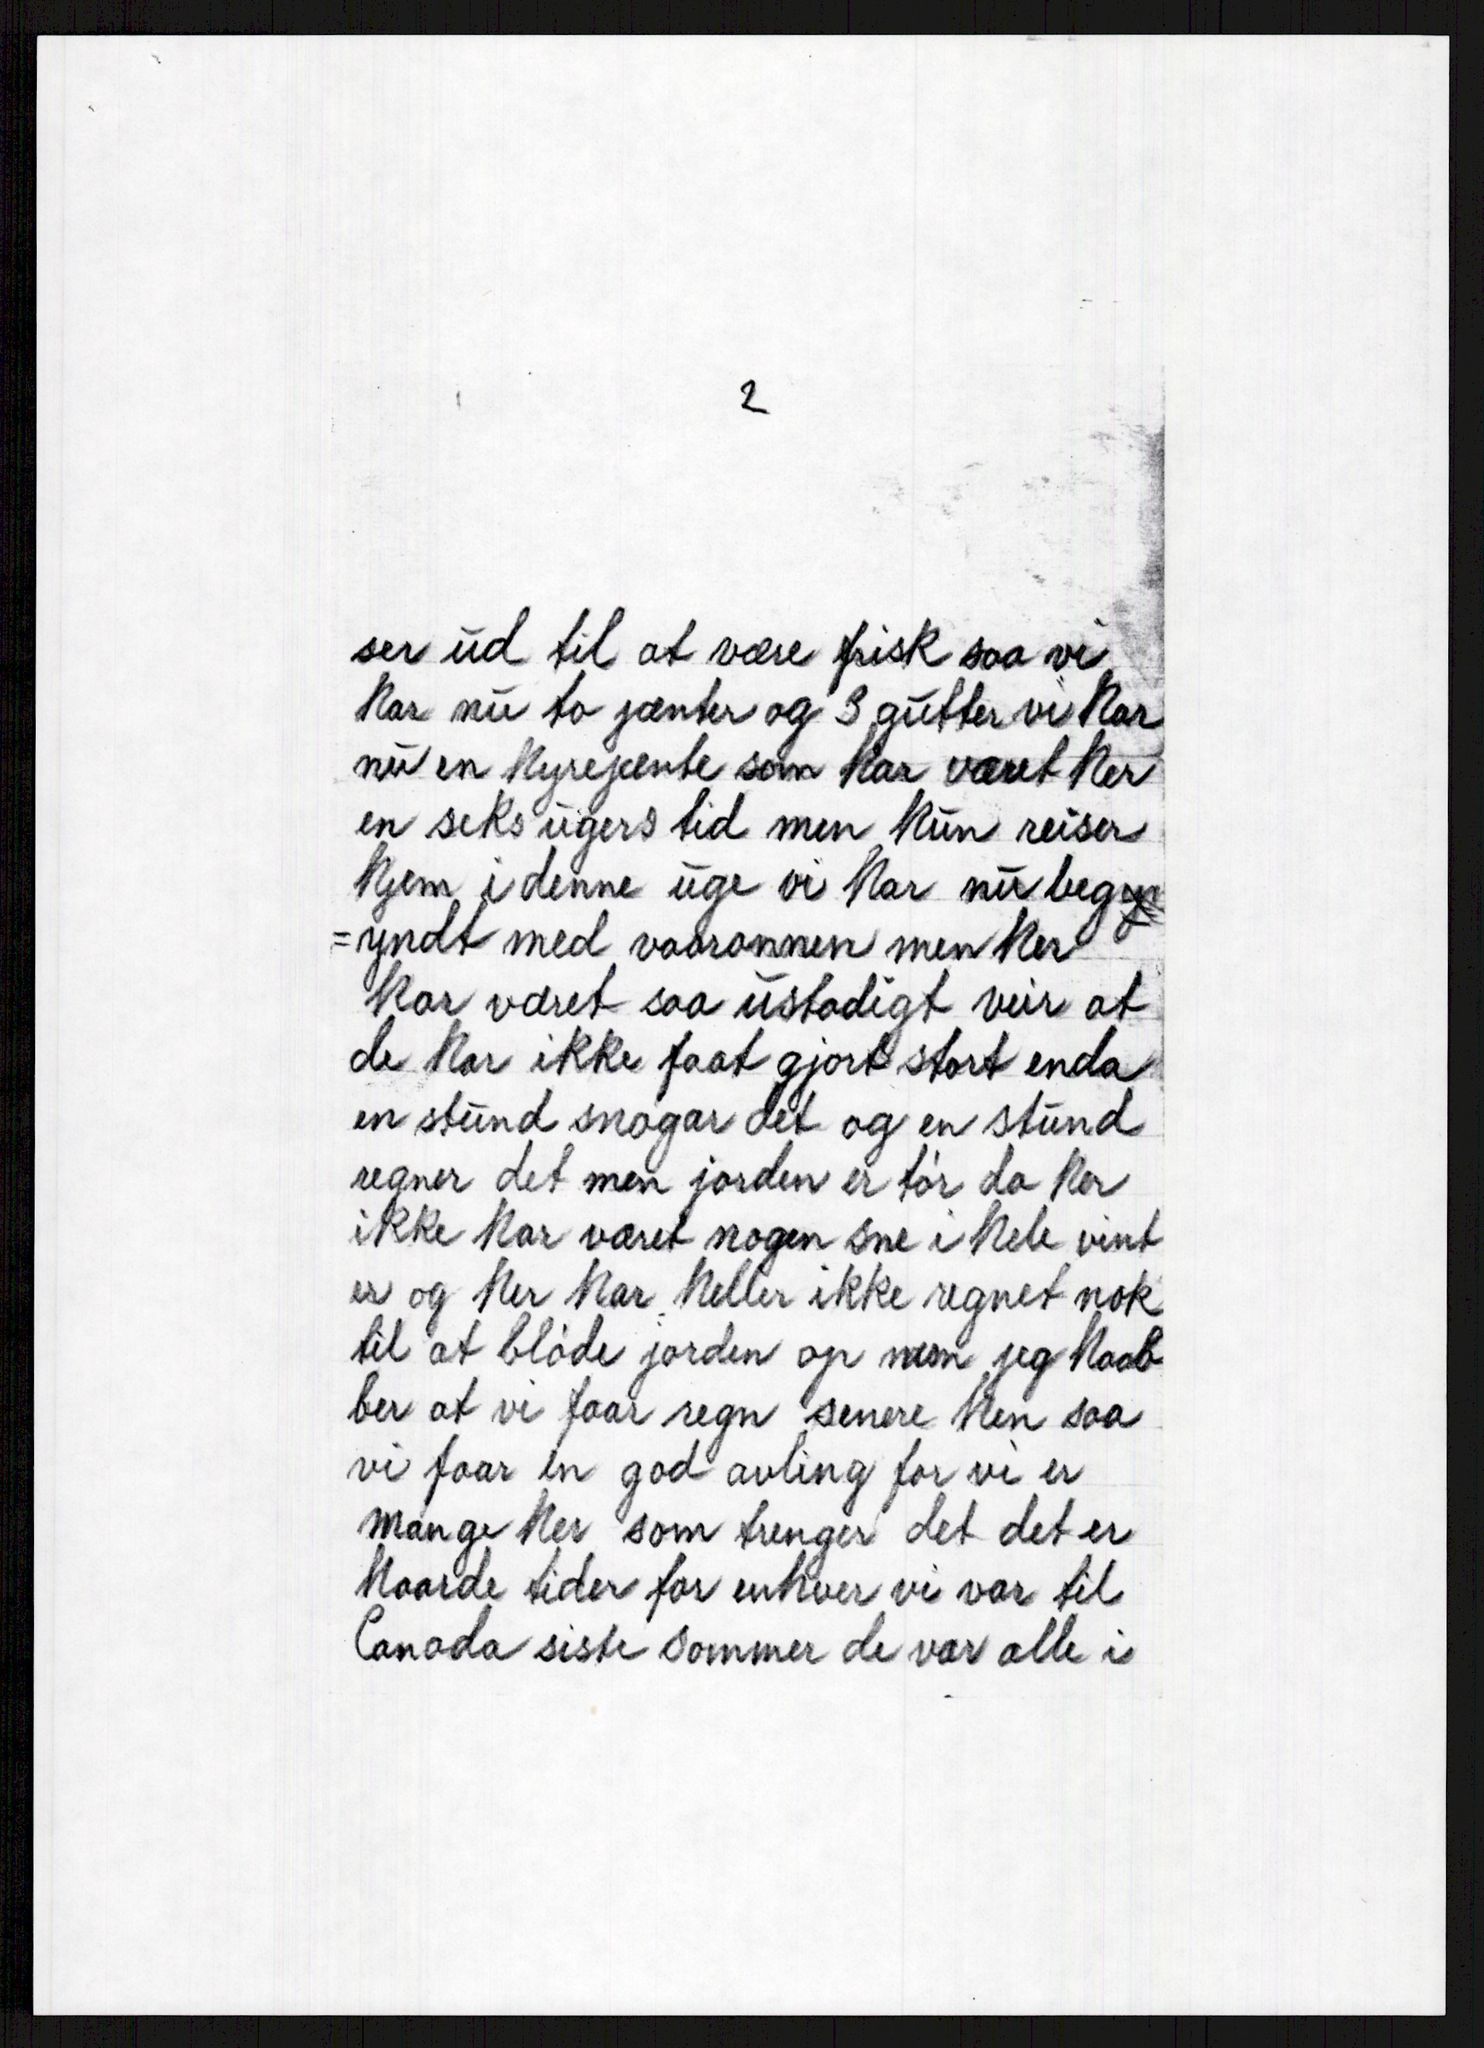 2
ser ud til at være frisk saa vi
har nu to jænter og 3 gutter vi har
nu en hyrejænte som har været her
en seks ugers tid men hun reiser
hjem i denne uge vi har nu beg
=yndt med vaaronnen men her
har været saa ustadigt veir at
de har ikke faat gjort stort enda
en stund snogar det og en stund
regner det men jorden er tór da her
ikke har været nogen sne i hele vint
er og her har heller ikke regnet nok
til at blóde jorden op men jeg haab
ber at vi faar regn senere hen saa
vi faar en god avling for vi er
mange her som trenger det det er
haarde tider for enhver vi var til
Canada siste sommer de var alle i